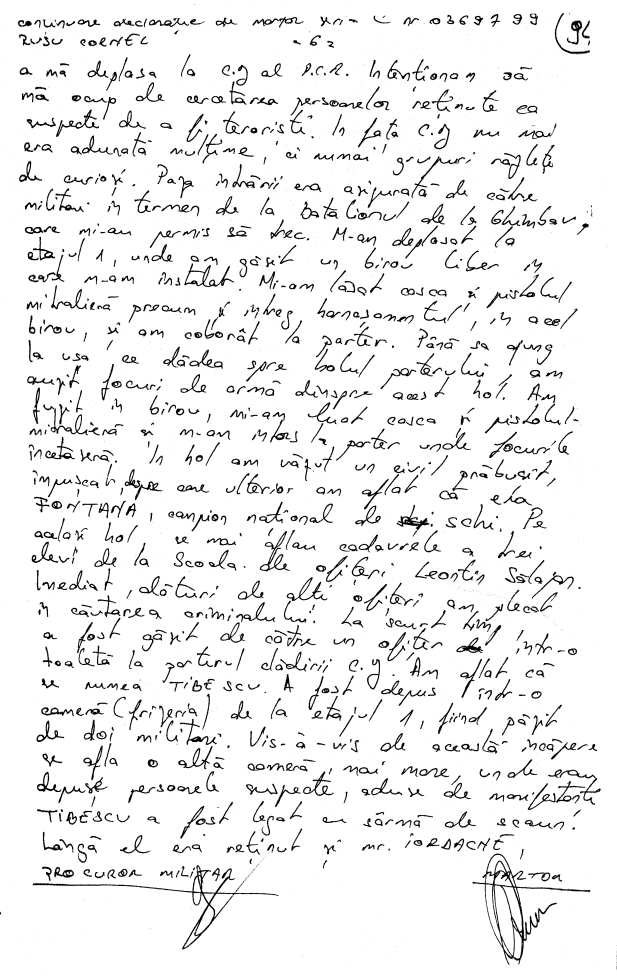 continuare declarație de martor seria C nr. 0369799
94
RUSU CORNEL
- 6 -
a mă deplasa la C.J al P.C.R. Intenționam să
mă ocup de cercetarea persoanelor reținute ca
suspecte de a fi teroristi. In fața C.J nu mai
era adunată mulțime, ci numai grupuri răzlețe
de curioși. Paza intrării era asigurată de către
militari in termen de la Batalionul de la Ghimbav,
care mi-au permis să trec. M-am deplasat la
etajul 1, unde am găsit un birou liber in
care m-am instalat. Mi-am lăsat casca și pistolul
mitralieră precum și intreg harnașamentul, in acel
birou, și am coborât la parter. Până sa ajung
la usa ce dădea spre holul parterului, am
auzit focuri de armă dinspre acest hol. Am
fugit in birou, mi-am luat casca și pistolul-
mitralieră și m-am intors la parter unde focurile
incetaseră. In hol am văzut un civil prăbușit,
impușcat, despre care ulterior am aflat că era
FONTANA, campion național de schi. Pe
același hol, se mai aflau cadavrele a trei
elevi de la Scoala de ofițeri Leontin Sălăjan.
Imediat, alături de alți ofițeri am plecat
in căutarea criminalului. La scurt timp
a fost găsit de către un ofițer intr-o
toaletă la parterul clădirii C.J. Am aflat că
se numea TIBESCU. A fost depus intr-o
cameră (frizeria) de la etajul 1, fiind păzit
de doi militari. Vis-à-vis de această incăpere
se afla o altă cameră, mai mare, unde erau
depuse persoanele suspecte, aduse de manifestanți
TIBESCU a fost legat cu sârmă de scaun.
Lângă el era reținut și mr. IORDACHE,
PROCUROR MILITAR
MARTOR